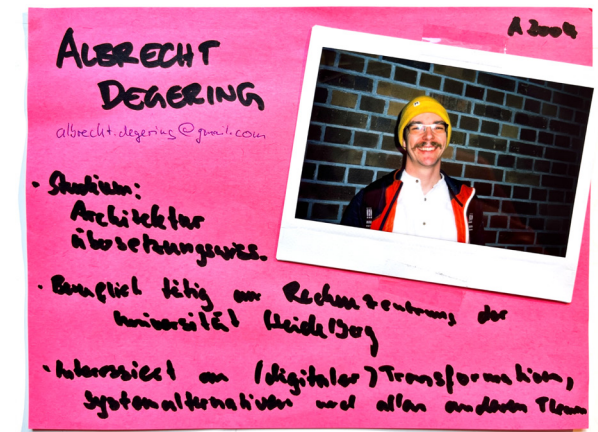 A 2004
ALBRECHT
DEGERING
albrecht.degering@gmail.com
• Studium:
Architektur
Übersetzungswiss.
• Beruflich tätig am Rechenzentrum der
Universität Heidelberg
• Interessiert an (digitaler) Transformation,
Systemalternativen und allen anderen Themen